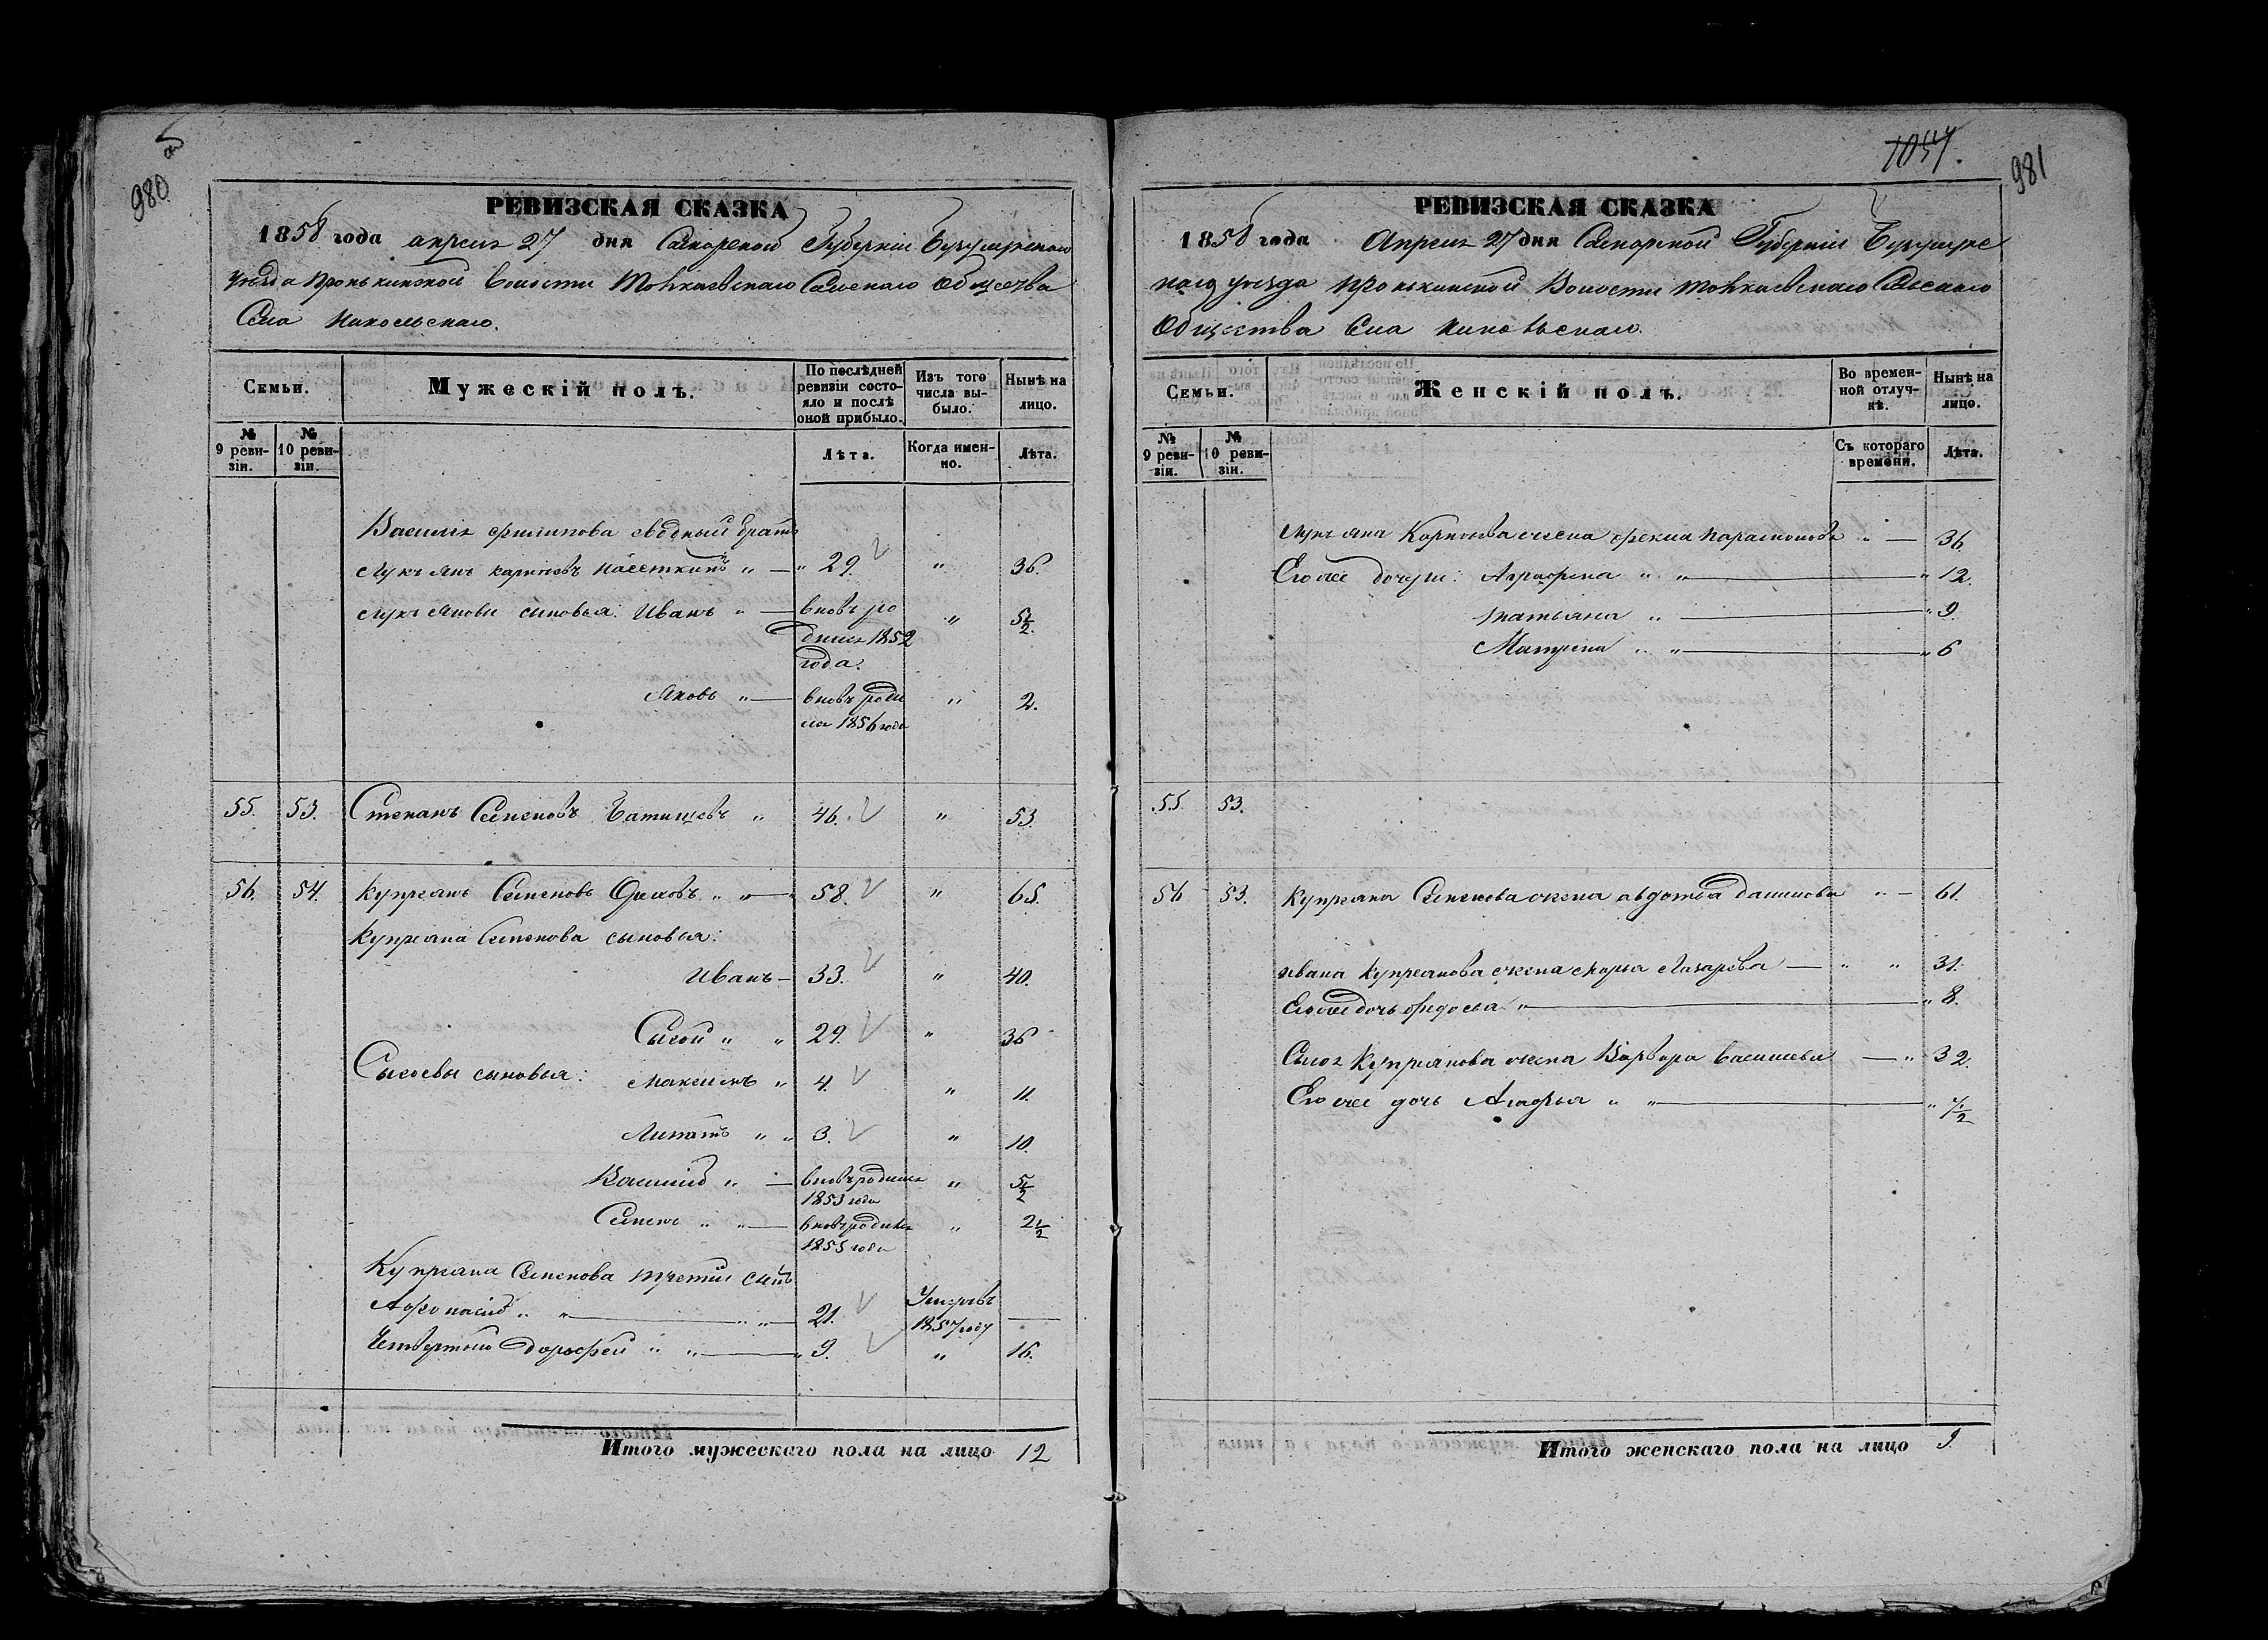 980
РЕВИЗСКАЯ СКАЗКА
1858 года апреля 27 дня Самарской Губерніи Бузулукского
уѣзда Пронькинской Волости Токкаевскаго Сельскаго Общества
Села Никольскаго.
Семьи.
Мужескій полъ.
По послѣдней ревизіи состояло и послѣ оной прибыло.
Изъ того числа выбыло.
Нынѣ на лицо.
№ 9 ревизіи.
№ 10 ревизіи.
Лѣта.
Когда именно.
Лѣта.
Василія Филипова сводный братъ
Лукъянъ Карповъ " — " 29. " 36.
Лукъяновы сыновья: Иванъ " — вновь ро " 5½
дился 1852
года.
Яковъ " — вновь роди " 2.
лся 1856 года
55. 53. Степанъ Семеновъ Батищевъ " 46. " 53.
56. 54. Купреянъ Семеновъ " " — 58. " 65.
Купреяна Семенова сыновья:
Иванъ — 33. " 40.
Сысой " " 29. " 36
Сысоевы сыновья: Максимъ " 4. " 11.
Липатъ " " 3. " 10.
Василій " — вновь родился " 5½
1853 года
Семенъ " " — вновь родился " 2½
1855 года
Купреяна Семенова третій сынъ
Афонасій " " — " " — 21. Умеръ въ —
1857 году
Четвертый Дорофей " " — " 9. " 16.
Итого мужескаго пола на лицо 12
1057.
981
РЕВИЗСКАЯ СКАЗКА
1858 года Апреля 27 дня Самарской Губерніи Бузулукс
каго уѣзда Пронькинской Волости Токкаевскаго Сельскаго
Общества Села Никольскаго.
Семьи.
Женскій полъ.
Во временной отлучкѣ.
Нынѣ на лицо.
№ 9 ревизіи.
№ 10 ревизіи.
Съ котораго времени.
Лѣта.
Лукъяна Карпова жена Фекла Парамонова " — 36
Его же дочери: Аграфена " " — " 12.
Татьяна " — " 9.
Матрена " " — " 6
55 53.
56 53. Купреяна Семенова жена Авдотья Данилова " — 61.
Ивана Купреянова жена Марья Лазарева — " " 31.
Его же дочь Федосья " — " 8.
Сысоя Купреянова жена Варвара Васильева — " 32.
Его же дочь Агафья " " — " ½
Итого женскаго пола на лицо 9